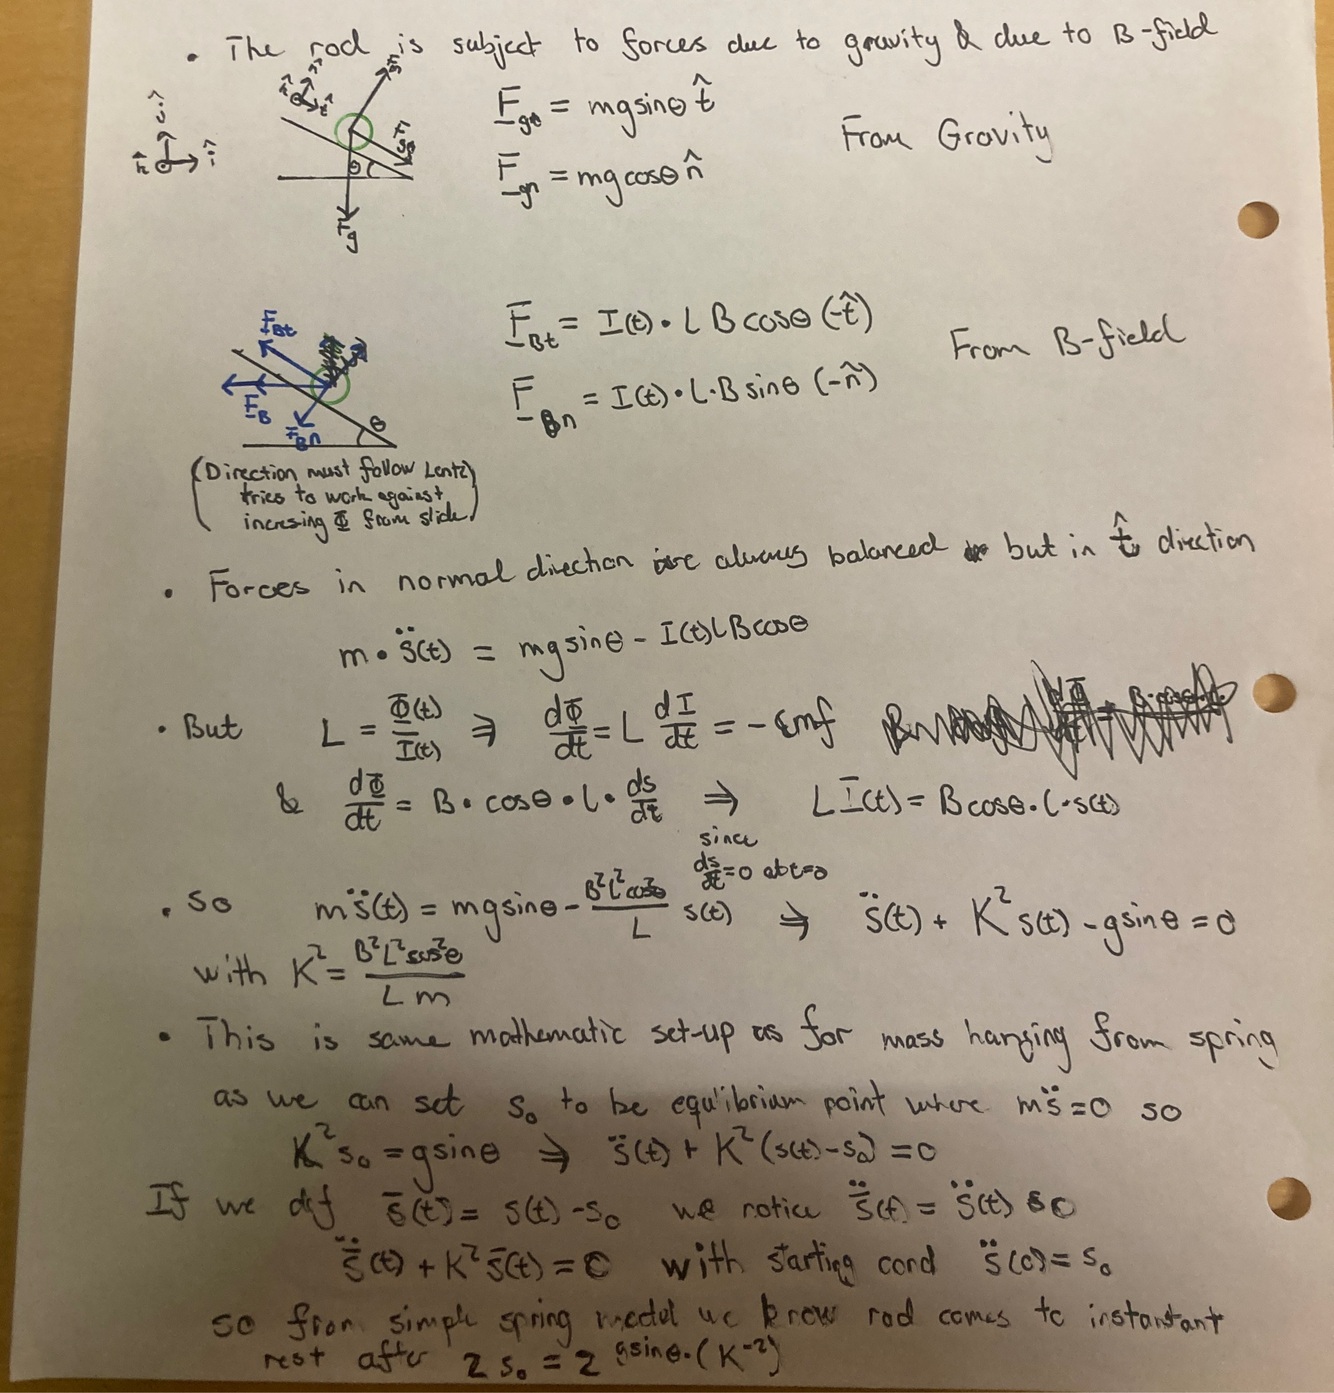 • The rod is subject to forces due to gravity & due to B-field
F_gt = mg sinθ t̂
From Gravity
F_gn = mg cosθ n̂
ĵ
k̂ î
n̂
k̂ t̂
θ
F_g
F_Bt = I(t)·l B cosθ (-t̂)
From B-field
F_Bn = I(t)·l·B sinθ (-n̂)
F_Bt
F_B
F_Bn
θ
(Direction must follow Lentz
tries to work against
incresing Φ from slide)
• Forces in normal direction are always balanced but in t̂ direction
m • s̈(t) = mg sinθ - I(t) l B cosθ
• But L = Φ(t)/I(t) ⇒ dΦ/dt = L dI/dt = - emf
& dΦ/dt = B • cosθ • l • ds/dt ⇒ L I(t) = B cosθ · l · s(t)
since
ds/dt = 0 at t=0
• so m s̈(t) = mg sinθ - B²l²cos²θ/L s(t) ⇒ s̈(t) + K² s(t) - g sinθ = 0
with K² = B²l²cos²θ / L m
• This is same mathematic set-up as for mass hanging from spring
as we can set s₀ to be equilibrium point where m s̈ = 0 so
K² s₀ = g sinθ ⇒ s̈(t) + K² (s(t) - s₀) = 0
If we def s̄(t) = s(t) - s₀ we notice s̄̈(t) = s̈(t) so
s̄̈(t) + K² s̄(t) = 0 with starting cond s̈(0) = s₀
so from simple spring model we know rod comes to instantant
rest after 2 s₀ = 2 g sinθ·(K⁻²)